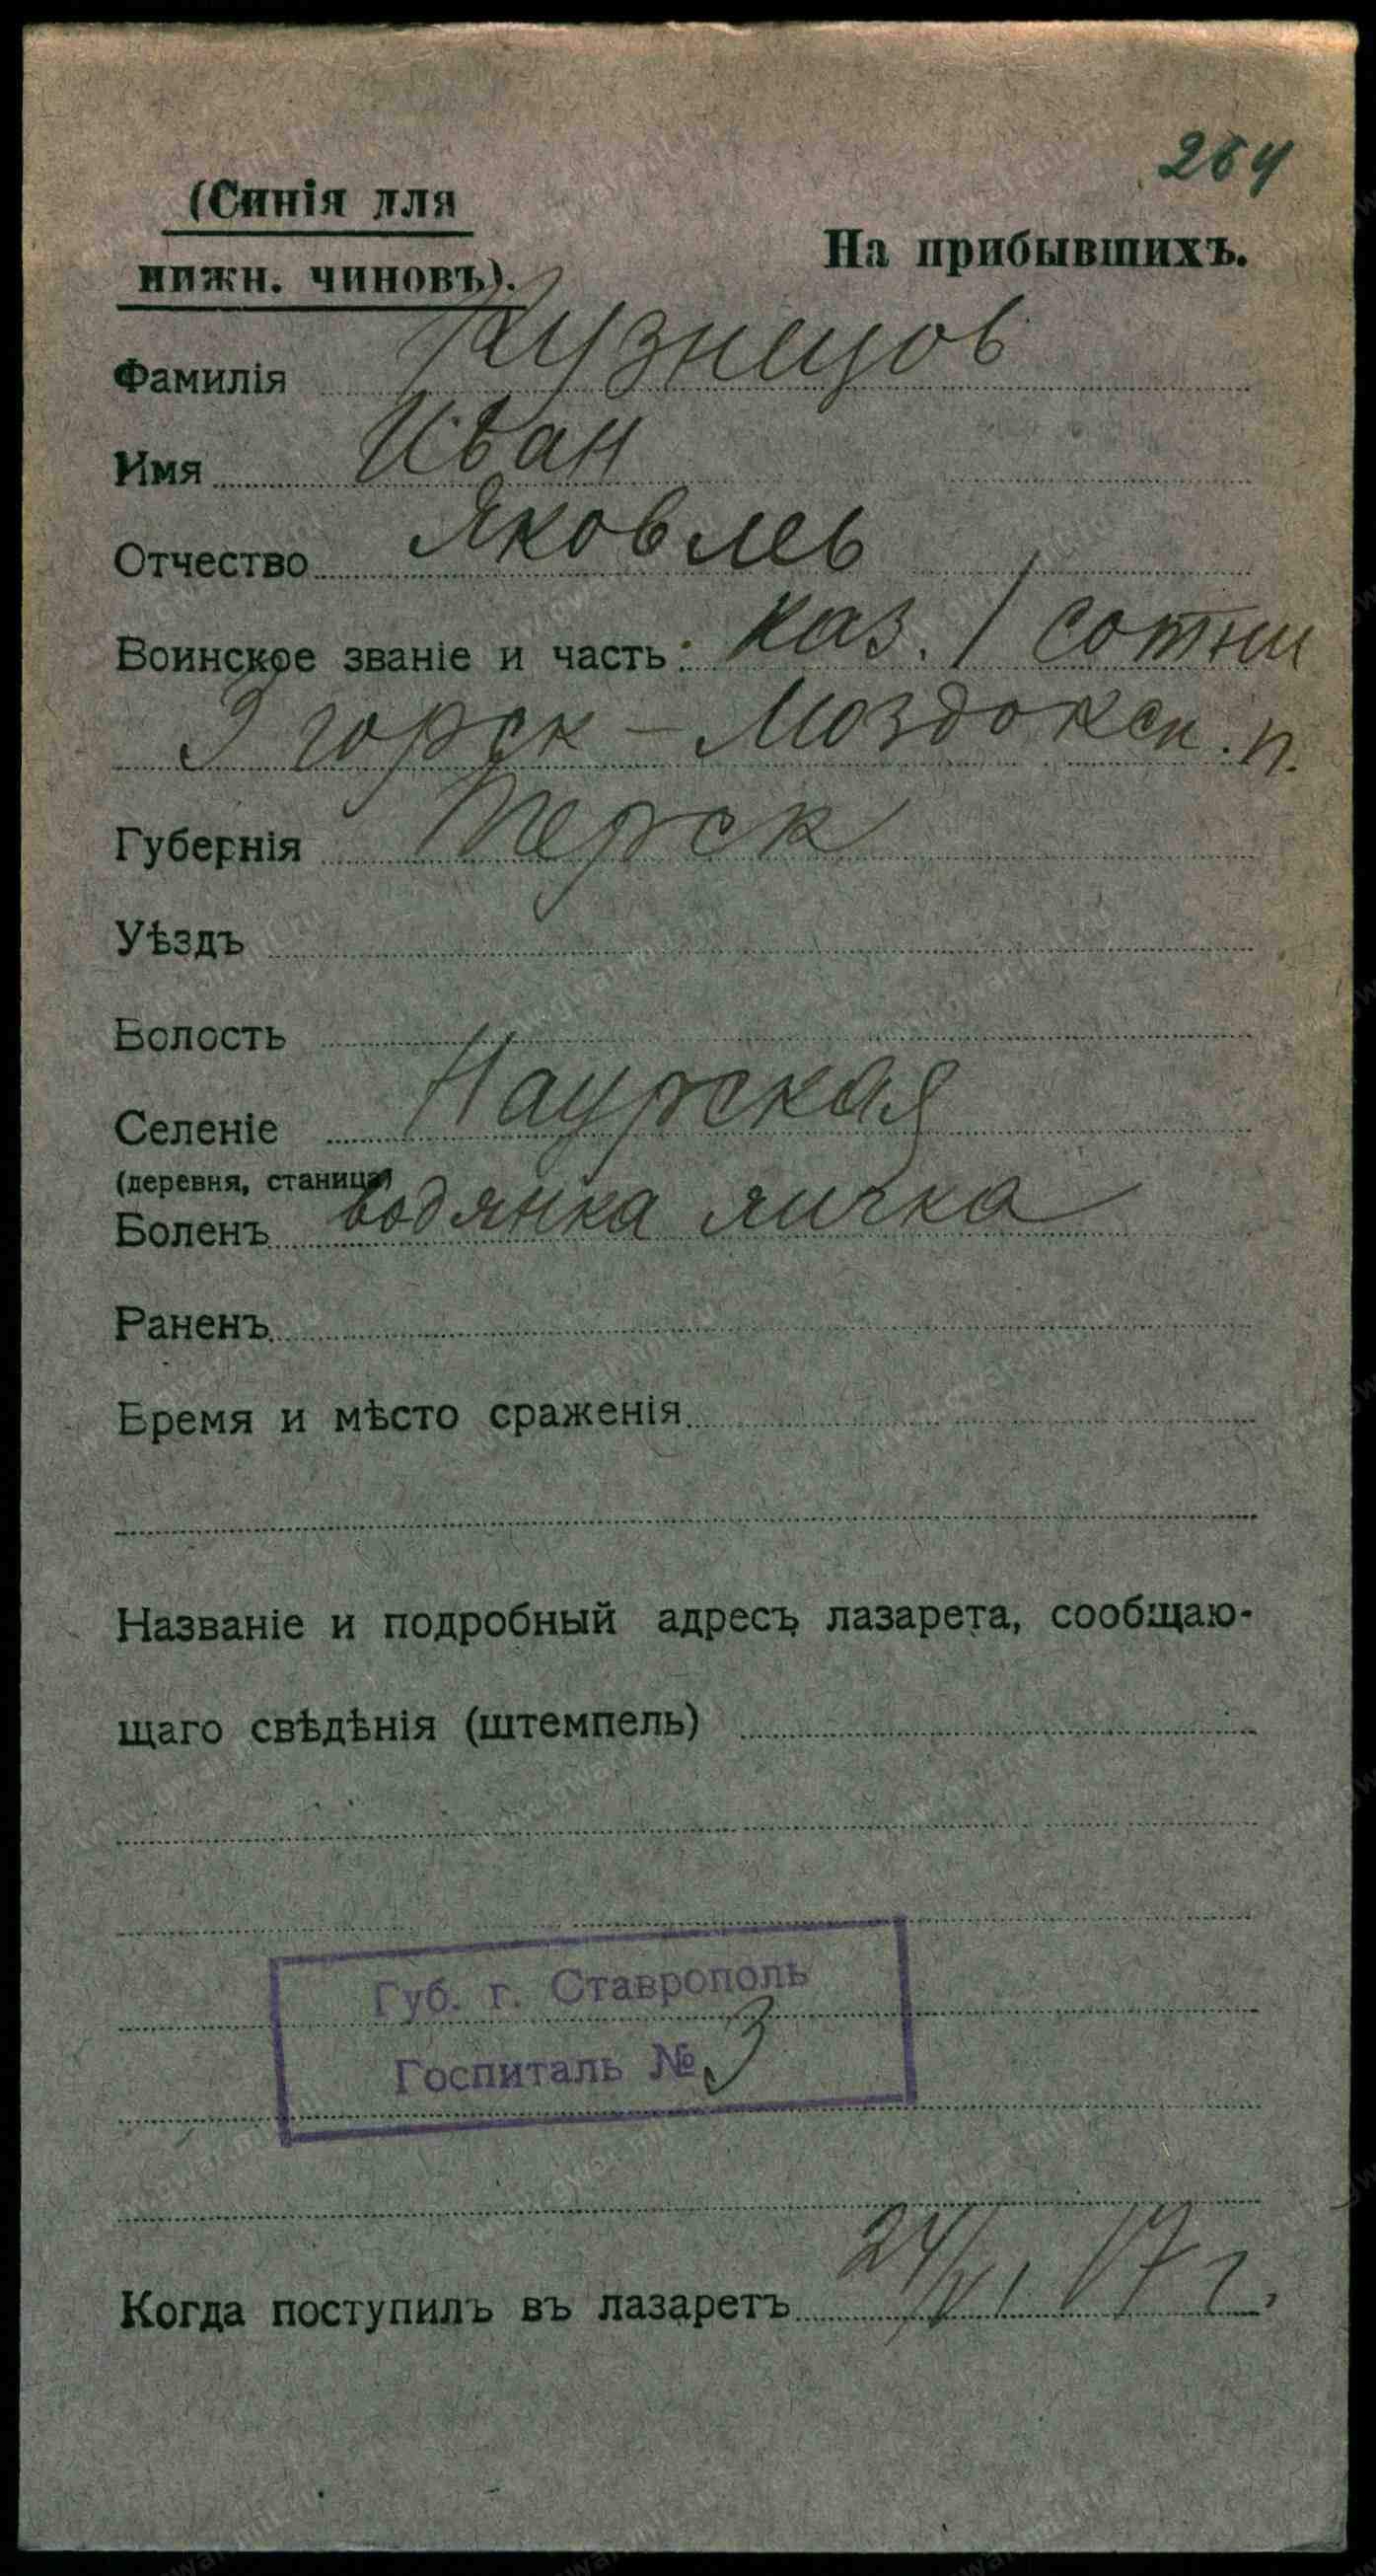 264
(Синія для
нижн. чиновъ).
На прибывшихъ.
Фамилія Кузнецов
Имя Иван
Отчество Яковлев
Воинское званіе и часть: каз. 1 сотни
3 горск - Моздокск. п.
Губернія Терск
Уѣздъ
Волость
Селеніе Наурская
(деревня, станица)
Боленъ водянка яичка
Раненъ
Время и мѣсто сраженія
Названіе и подробный адресъ лазарета, сообщаю-
щаго свѣдѣнія (штемпель)
Губ. г. Ставрополь
Госпиталь № 3
Когда поступилъ въ лазаретъ 24/VI 17 г.